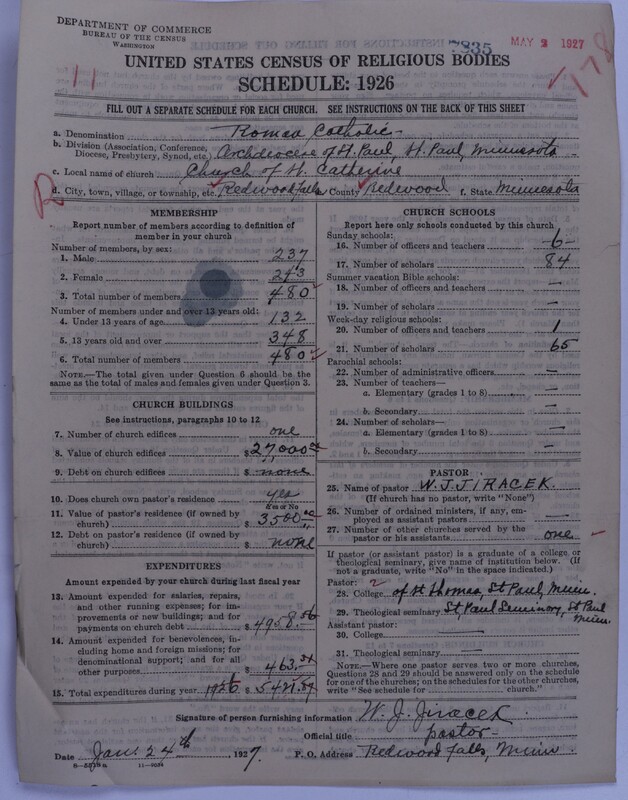 DEPARTMENT OF COMMERCE
BUREAU OF THE CENSUS
WASHINGTON
7835
MAY 3 1927
11
178
UNITED STATES CENSUS OF RELIGIOUS BODIES
SCHEDULE: 1926
FILL OUT A SEPARATE SCHEDULE FOR EACH CHURCH. SEE INSTRUCTIONS ON THE BACK OF THIS SHEET
a. Denomination Roman Catholic
b. Division (Association, Conference, Diocese, Presbytery, Synod, etc.) Archdiocese of St. Paul, St. Paul, Minnesota
c. Local name of church Church of St. Catherine
d. City, town, village, or township, etc. Redwood falls County Redwood f. State Minnesota
MEMBERSHIP
Report number of members according to definition of
member in your church
Number of members, by sex:
1. Male 237
2. Female 243
3. Total number of members 480
Number of members under and over 13 years old:
4. Under 13 years of age 132
5. 13 years old and over 348
6. Total number of members 480
NOTE.—The total given under Question 6 should be
same as the total of males and females given under Question 3.
CHURCH BUILDINGS
See instructions, paragraphs 10 to 12
7. Number of church edifices one
8. Value of church edifices $27,000
9. Debt on church edifices $none
10. Does church own pastor's residence yes
Yes or No
11. Value of pastor's residence (if owned by
church) $3500
12. Debt on pastor's residence (if owned by
church) $none
EXPENDITURES
Amount expended by your church during last fiscal year
13. Amount expended for salaries, repairs,
and other running expenses; for im-
provements or new buildings; and for
payments on church debt $4958.56
14. Amount expended for benevolences, in-
cluding home and foreign missions; for
denominational support; and for all
other purposes $463.
15. Total expenditures during year 1926 $5421.
CHURCH SCHOOLS
Report here only schools conducted by this church
Sunday schools:
16. Number of officers and teachers 6
17. Number of scholars 84
Summer vacation Bible schools:
18. Number of officers and teachers —
19. Number of scholars —
Week-day religious schools:
20. Number of officers and teachers 1
21. Number of scholars 65
Parochial schools:
22. Number of administrative officers —
23. Number of teachers—
a. Elementary (grades 1 to 8) —
b. Secondary —
24. Number of scholars—
a. Elementary (grades 1 to 8) —
b. Secondary —
PASTOR
25. Name of pastor W. J. JIRACEK.
(If church has no pastor, write "None")
26. Number of ordained ministers, if any, em-
ployed as assistant pastors —
27. Number of other churches served by the
pastor or his assistants one
If pastor (or assistant pastor) is a graduate of a college or
theological seminary, give name of institution below. (If
not a graduate, write "No" in the space indicated.)
Pastor:
28. College of St Thomas, St Paul, Minn.
29. Theological seminary St. Paul Seminary, St Paul Minn.
Assistant pastor:
30. College —
31. Theological seminary —
NOTE.—Where one pastor serves two or more churches,
Questions 28 and 29 should be answered only on the schedule
for one of the churches; on the schedules for the other churches,
write "See schedule for church."
Signature of person furnishing information W. J. Jiracek
Official title pastor
Date Jan. 24th, 1927. P. O. Address Redwood falls, Minn.